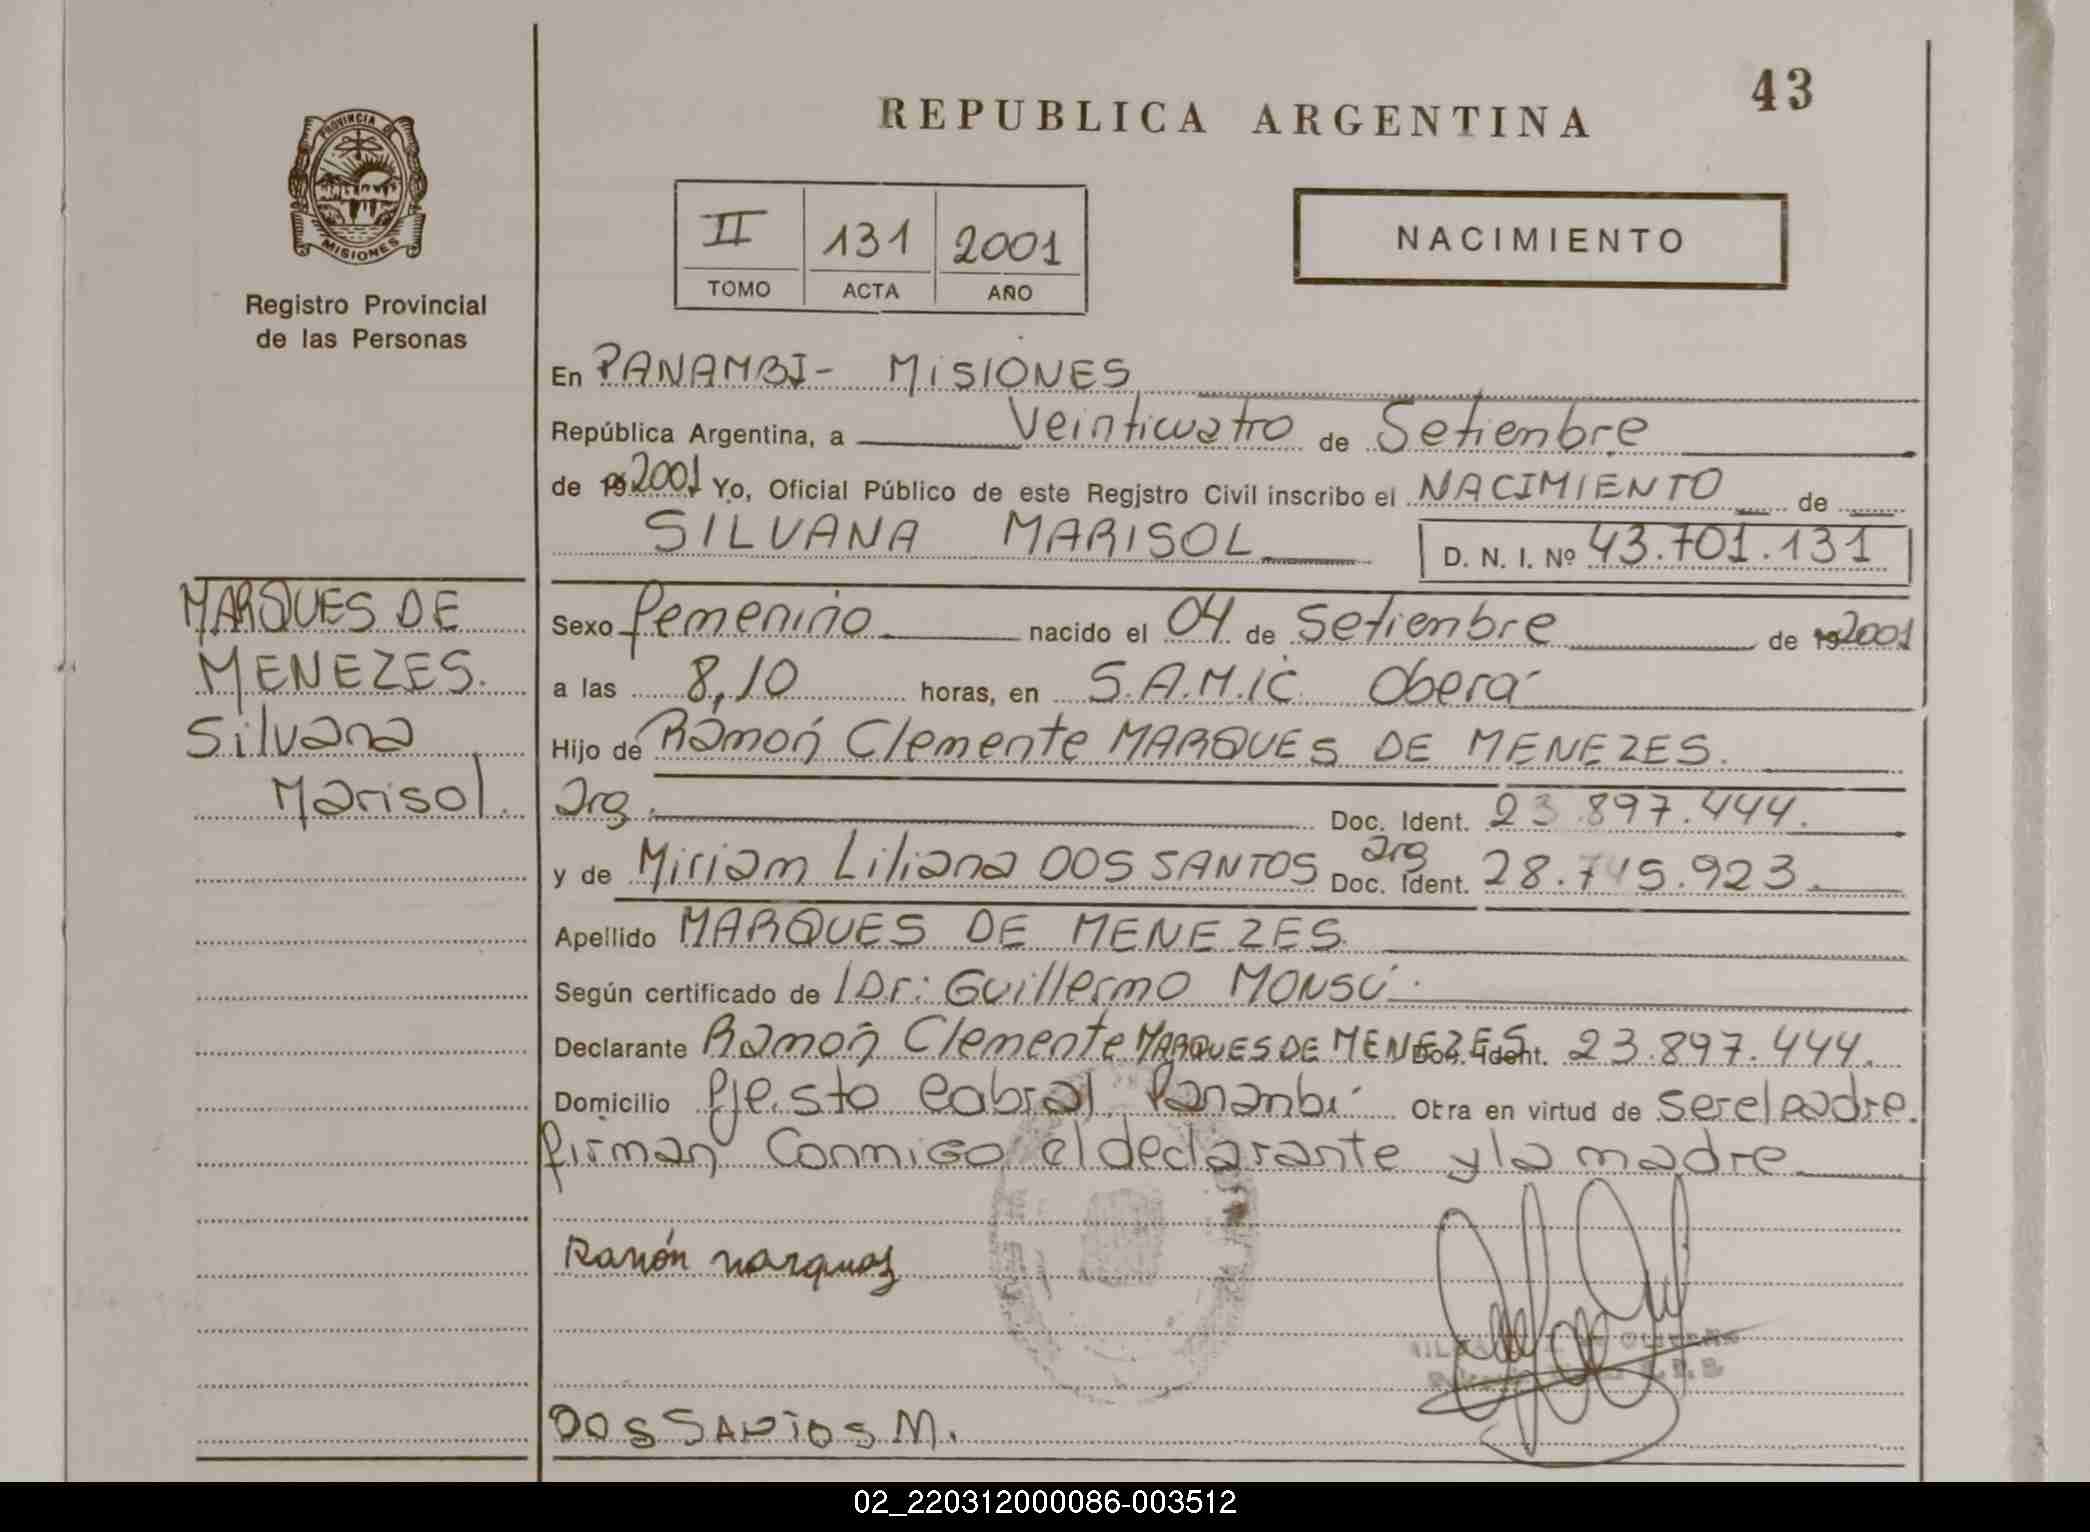 43
REPUBLICA ARGENTINA
PROVINCIA DE
MISIONES
Registro Provincial
de las Personas
II 131 2001
TOMO ACTA AÑO
NACIMIENTO
En PANAMBI - MISIONES
República Argentina, a Veinticuatro de Setiembre
de 19 2001 Yo, Oficial Público de este Registro Civil inscribo el NACIMIENTO de
SILVANA MARISOL D. N. I. Nº 43.701.131
MARQUES DE
MENEZES.
Silvana
Marisol.
Sexo femenino nacido el 04 de Setiembre de 19 2001
a las 8,10 horas, en S.A.M.iC Oberá
Hijo de Ramón Clemente MARQUES DE MENEZES.
arg. Doc. Ident. 23.897.444.
y de Miriam Liliana DOS SANTOS arg Doc. Ident. 28.745.923.
Apellido MARQUES DE MENEZES
Según certificado de Dr: Guillermo MONSÚ.
Declarante Ramón Clemente MARQUES DE MENEZES Doc. Ident. 23.897.444.
Domicilio Pje. sto Cabral, Panambí Otra en virtud de ser el padre.
firman Conmigo el declarante y la madre
Ramón marques
DOS SANTOS M.
02_220312000086-003512